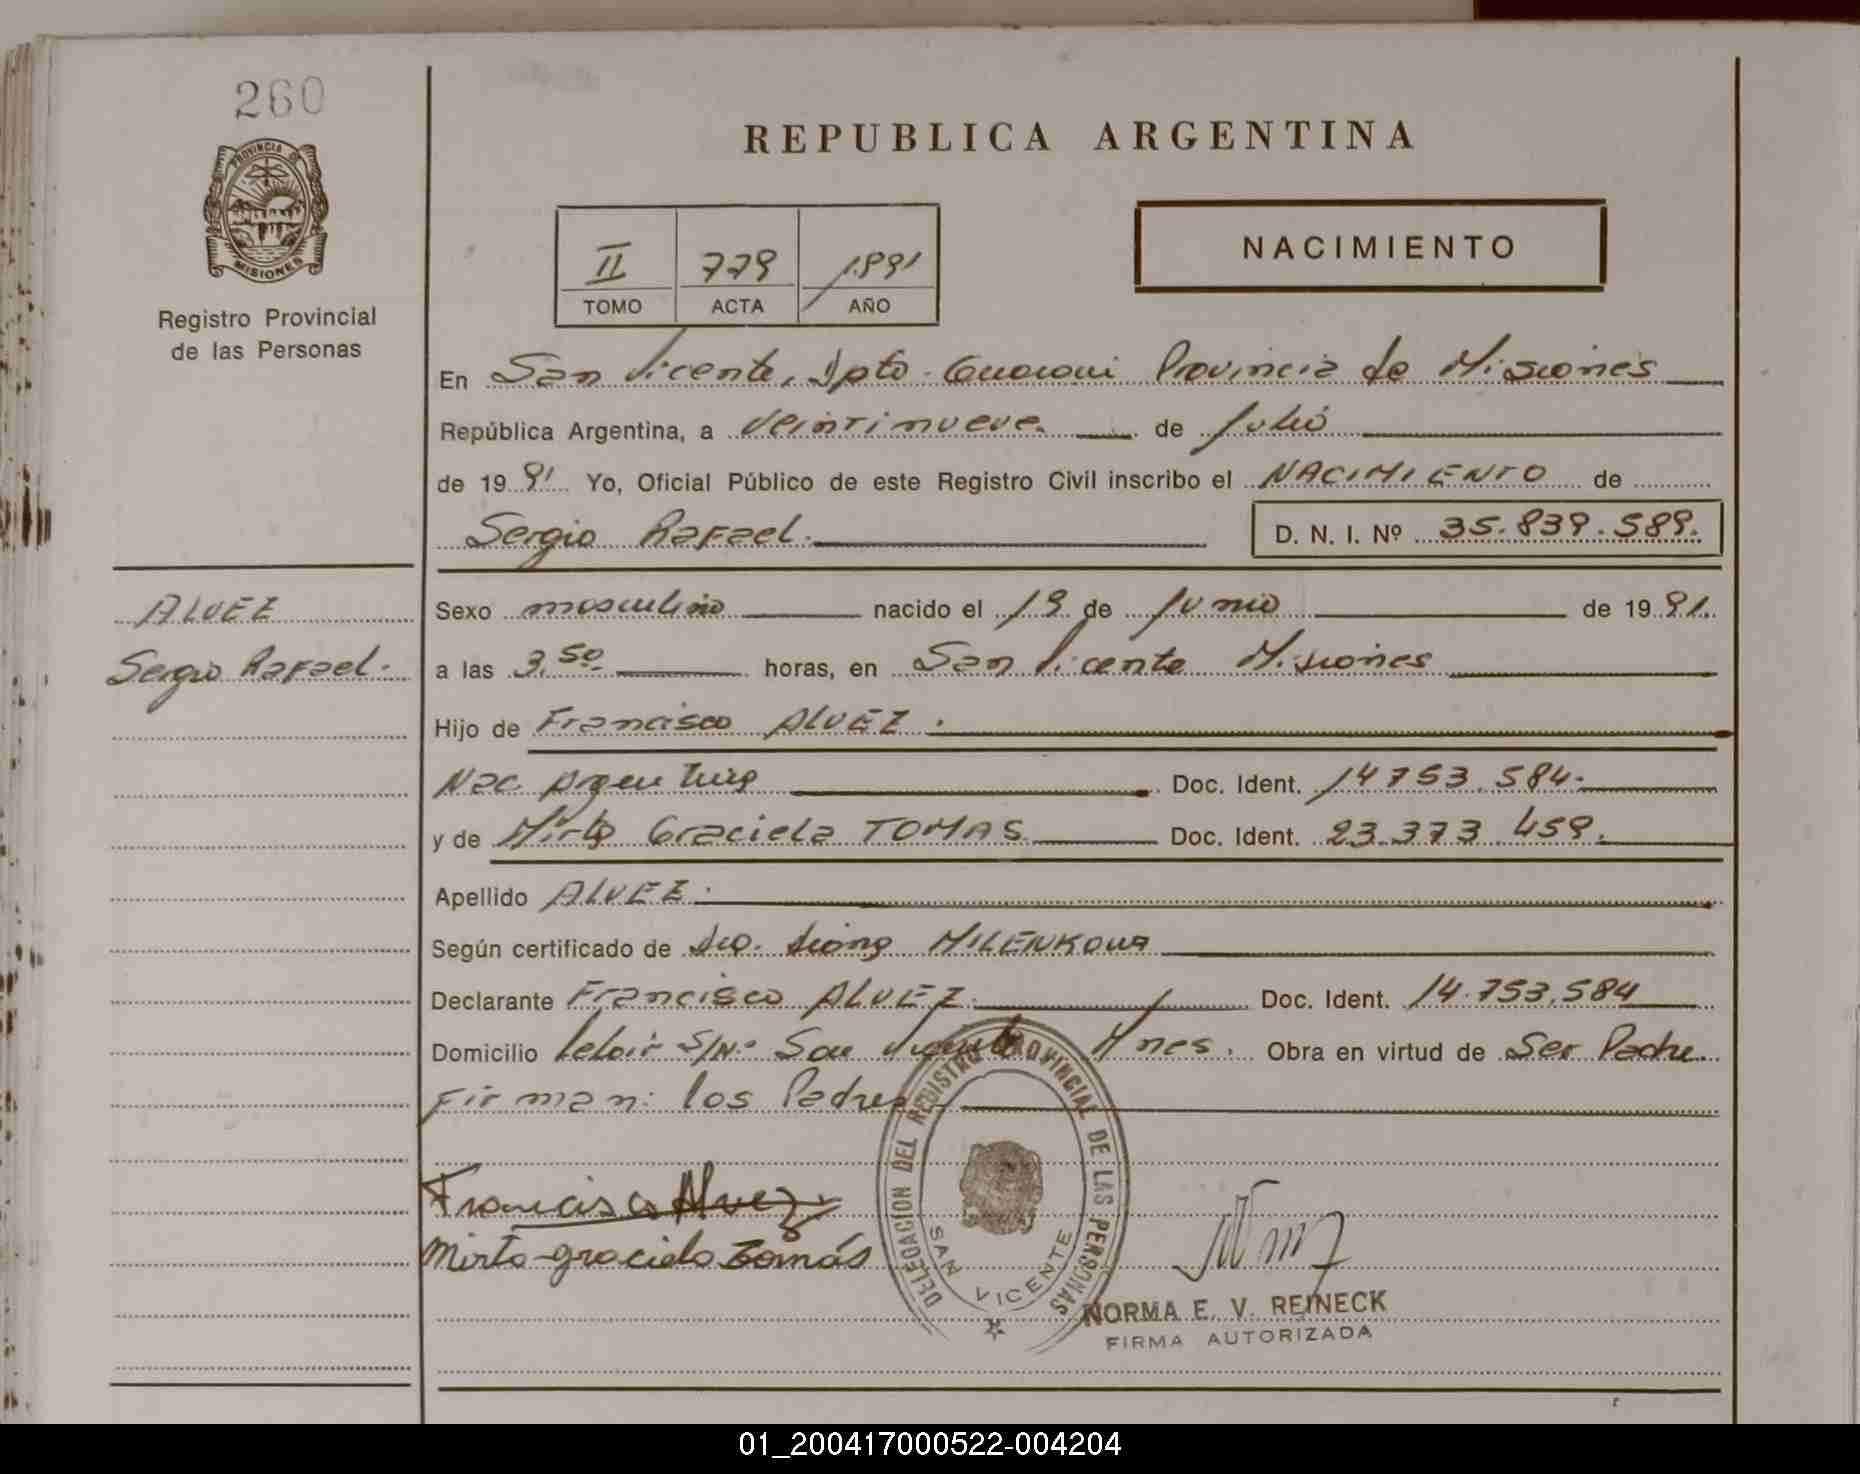 260
PROVINCIA DE
MISIONES
Registro Provincial
de las Personas
REPUBLICA ARGENTINA
II 779 1991
TOMO ACTA AÑO
NACIMIENTO
En San Vicente, Dpto. Guarani Provincia de Misiones
República Argentina, a veintinueve de Julio
de 1991 Yo, Oficial Público de este Registro Civil inscribo el NACIMIENTO de
Sergio Rafael. D. N. I. Nº 35.839.589.
ALVEZ
Sergio Rafael.
Sexo masculino nacido el 19 de Junio de 1991.
a las 3.50 horas, en San Vicente Misiones
Hijo de Francisco ALVEZ.
Nac. Argentina Doc. Ident. 14753.584.
y de Mirta Graciela TOMAS Doc. Ident. 23.373.459.
Apellido ALVEZ.
Según certificado de MILENKOWA
Declarante Francisco ALVEZ. Doc. Ident. 14.753.584
Domicilio Leloir S/Nº San Vicente Mnes. Obra en virtud de Ser Padre.
Firman: los Padres
Francisco Alvez
Mirta graciela Tomás
DELEGACION DEL REGISTRO PROVINCIAL DE LAS PERSONAS
SAN VICENTE
NORMA E. V. REINECK
FIRMA AUTORIZADA
01_200417000522-004204